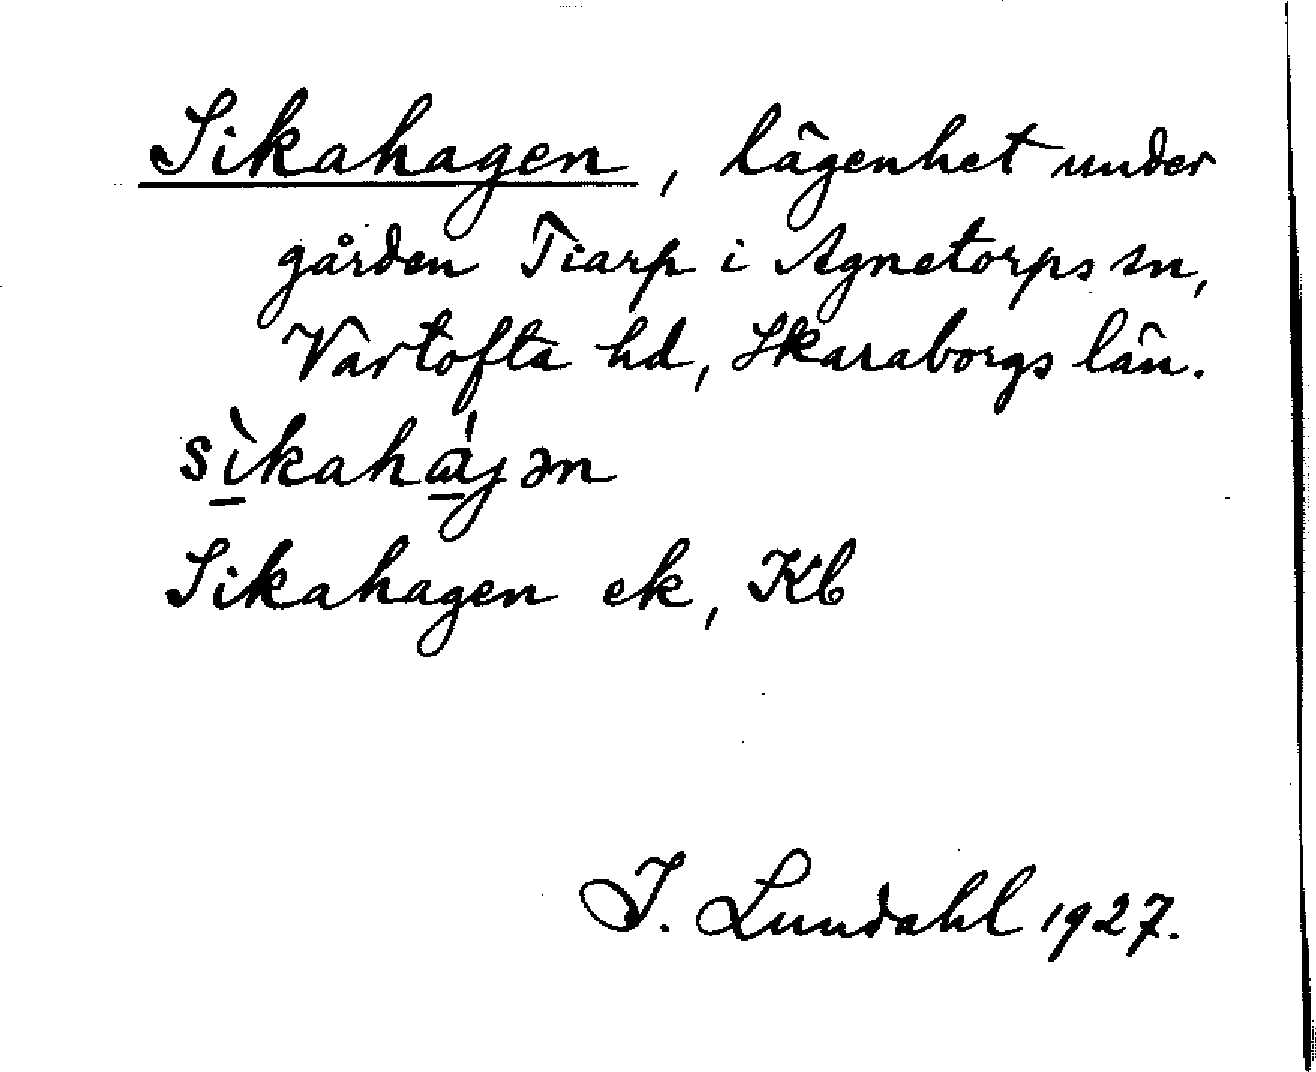 Sikahagen, lägenhet under
gården Tiarp i Agnetorps sn,
Vartofta hd, Skaraborgs län.
sìkahɑ̀jən
Sikahagen ek, Kb
I. Lundahl 1927.